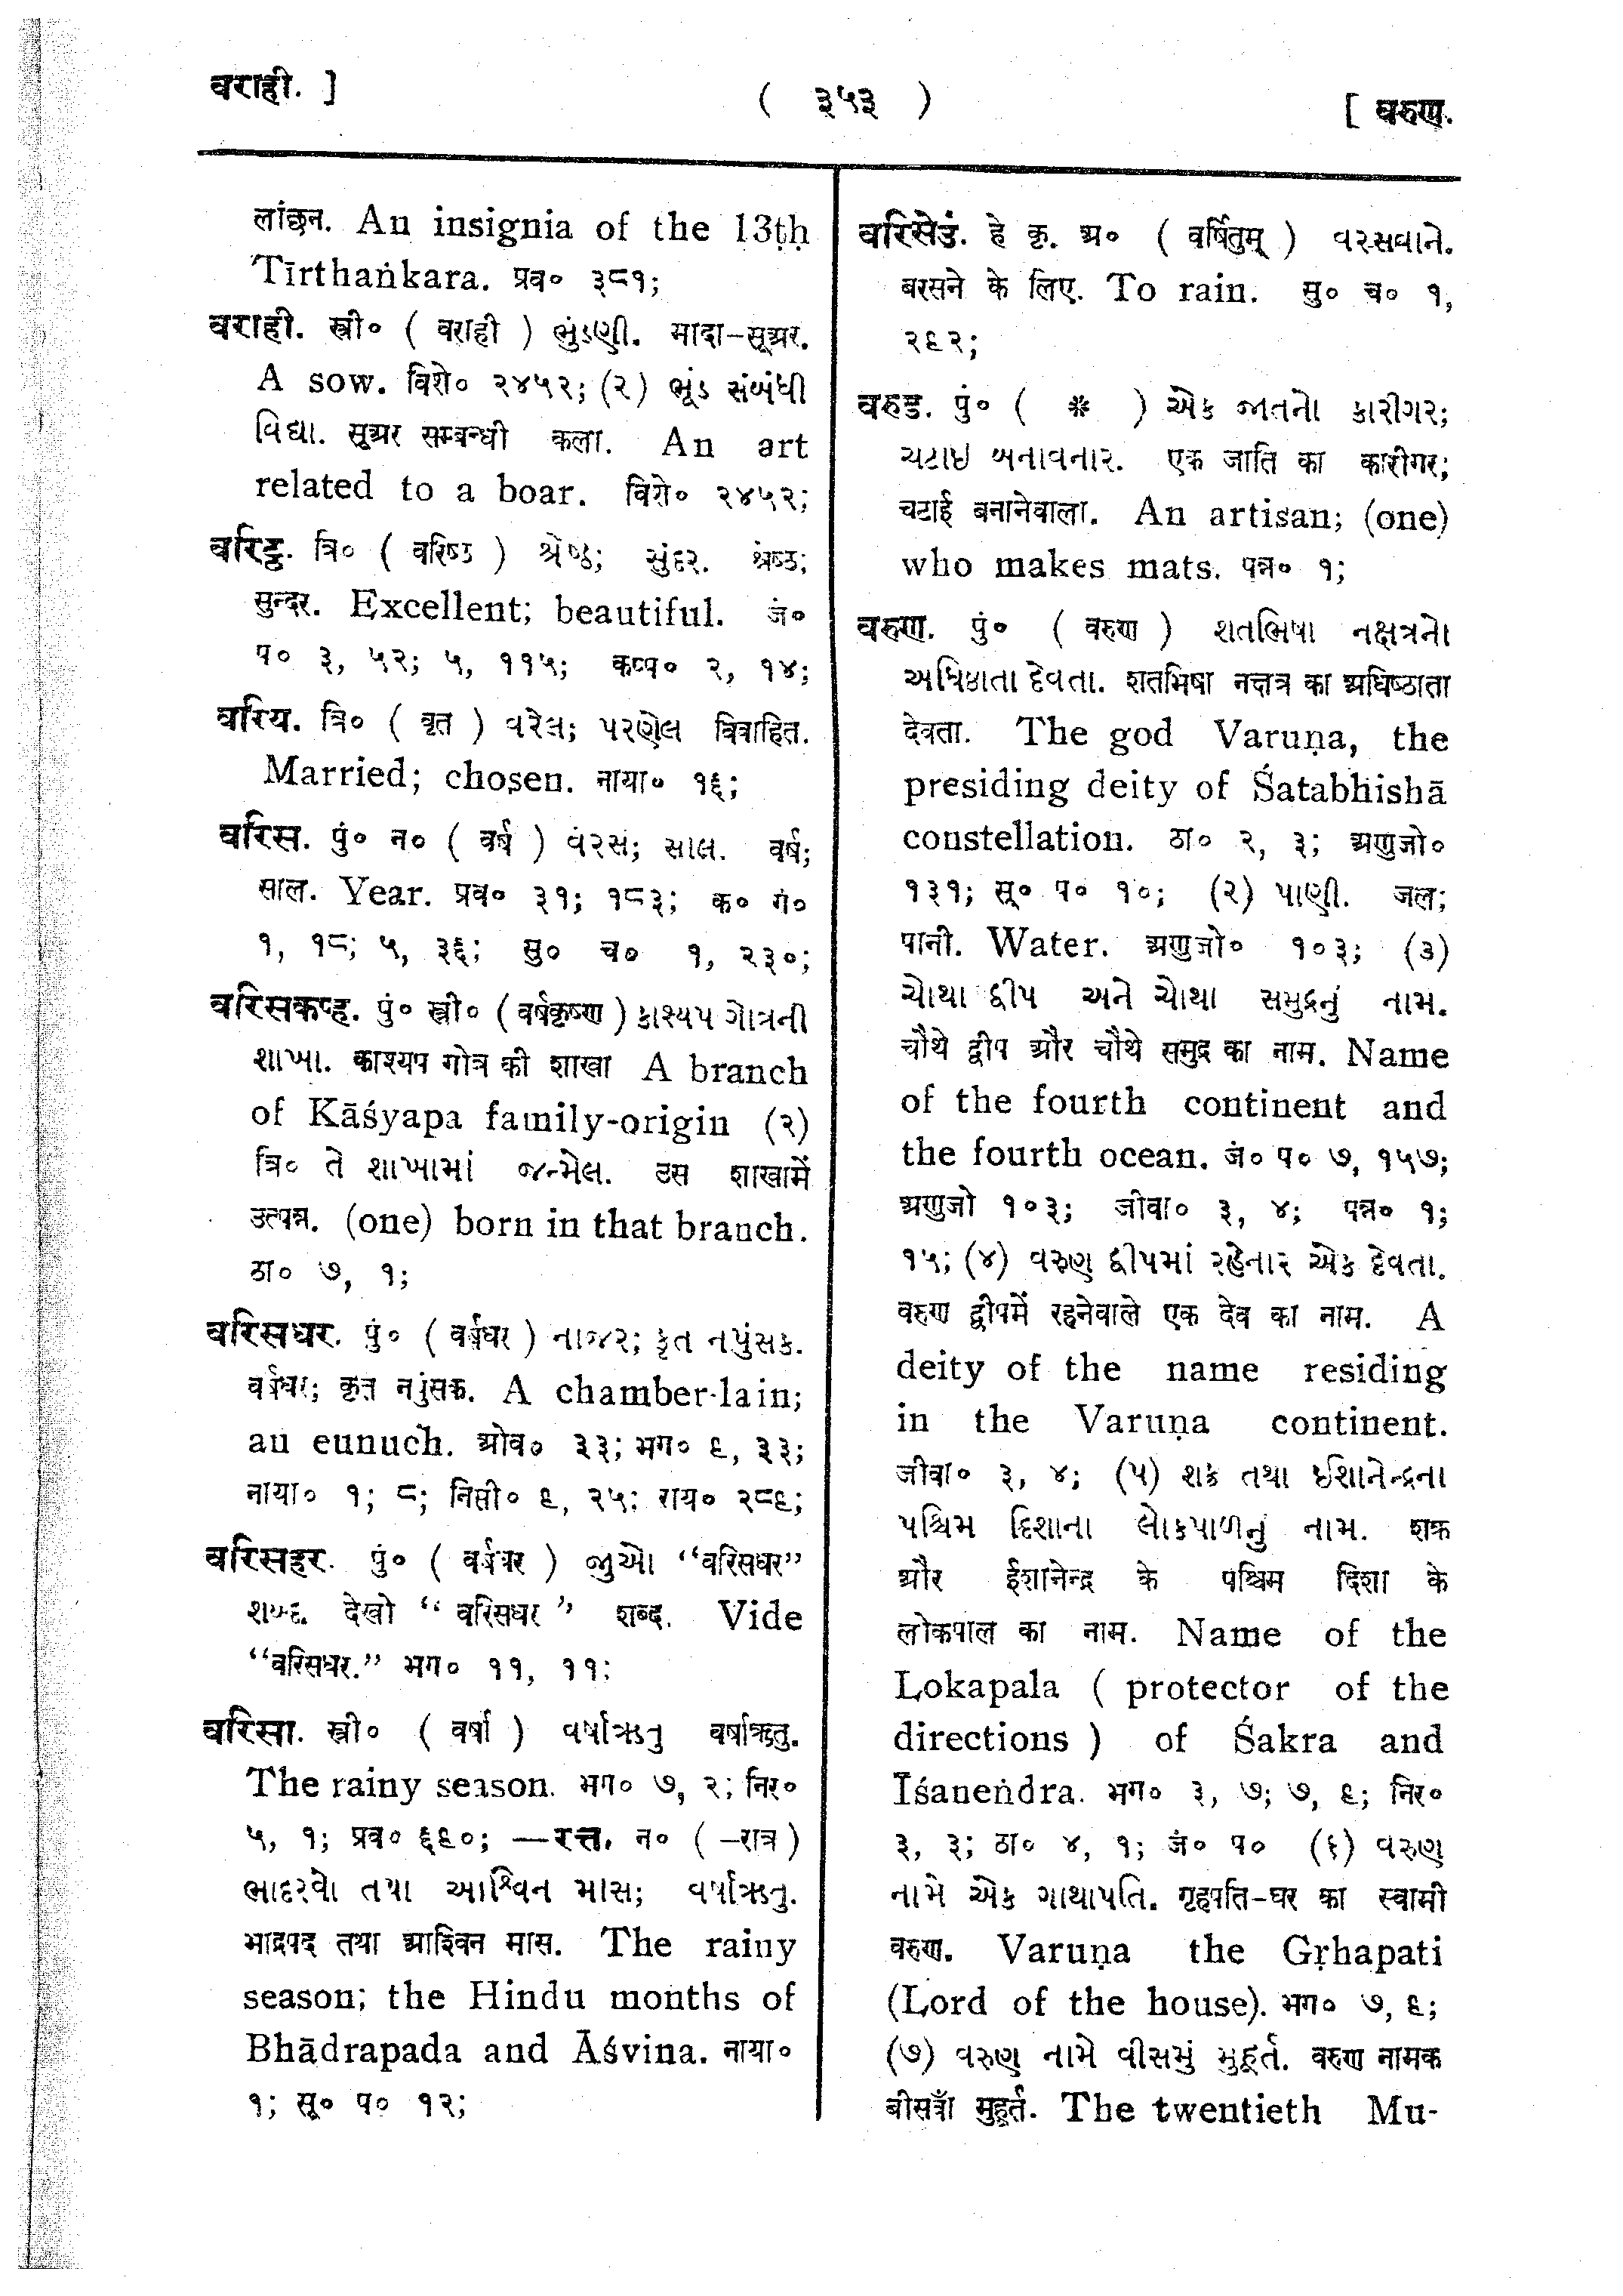 वराही. ]
( ३५३ )
[ वरुण.
लांछन. An insignia of the 13ṭḥ
Tīrthaṅkara. प्रव० ३८१;
वराही. स्त्री० ( वराही ) ભુંડણી. मादा-सूअर.
A sow. विशे० २४५२; (२) ભૂંડ સંબંધી
વિદ્યા. सूअर सम्बन्धी कला. An art
related to a boar. विशे० २४५२;
वरिट्ठ. त्रि० ( वरिष्ठ ) શ્રેષ્ઠ; સુંદર. श्रेष्ठ;
सुन्दर. Excellent; beautiful. जं०
प० ३, ५२; ५, ११५; कप्प० २, १४;
वरिय. त्रि० ( वृत ) વરેલ; પરણેલ विवाहित.
Married; chosen. नाया० १६;
वरिस. पुं० न० ( वर्ष ) વરસ; સાલ. वर्ष;
साल. Year. प्रव० ३१; १८३; क० गं०
१, १८; ५, ३६; सु० च० १, २३०;
वरिसकण्ह. पुं० स्त्री० ( वर्षकृष्ण ) કાશ્યપ ગોત્રની
શાખા. काश्यप गोत्र की शाखा A branch
of Kāśyapa family-origin (२)
त्रि० તે શાખામાં જન્મેલ. उस शाखामें
उत्पन्न. (one) born in that branch.
ठा० ७, १;
वरिसधर. पुं० ( वर्षधर ) નાજર; કૃત નપુંસક.
वर्षधर; कृत नपुंसक. A chamber-lain;
an eunuch. ओव० ३३; भग० ६, ३३;
नाया० १; ८; निसी० ६, २५; राय० २८६;
वरिसहर. पुं० ( वर्षधर ) જુઓ "वरिसधर"
શબ્દ. देखो " वरिसधर " शब्द. Vide
"वरिसधर." भग० ११, ११;
वरिसा. स्त्री० ( वर्षा ) વર્ષાઋતુ वर्षाऋतु.
The rainy season. भग० ७, २; निर०
५, १; प्रव० ६६०; —रत्त. न० ( -रात्र )
ભાદરવો તથા આશ્વિન માસ; વર્ષાઋતુ.
भाद्रपद तथा आश्विन मास. The rainy
season; the Hindu months of
Bhādrapada and Āśvina. नाया०
१; सू० प० १२;
वरिसेउं. हे कृ. अ० ( वर्षितुम् ) વરસવાને.
बरसने के लिए. To rain. सु० च० १,
२६२;
वरुड. पुं० ( * ) એક જાતનો કારીગર;
ચટાઇ બનાવનાર. एक जाति का कारीगर;
चटाई बनानेवाला. An artisan; (one)
who makes mats. पन्न० १;
वरुण. पुं० ( वरुण ) શતભિષા નક્ષત્રનો
અધિષ્ઠાતા દેવતા. शतभिषा नक्षत्र का अधिष्ठाता
देवता. The god Varuṇa, the
presiding deity of Śatabhishā
constellation. ठा० २, ३; अणुजो०
१३१; सू० प० १०; (२) પાણી. जल;
पानी. Water. अणुजो० १०३; (३)
ચોથા દ્વીપ અને ચોથા સમુદ્રનું નામ.
चौथे द्वीप और चौथे समुद्र का नाम. Name
of the fourth continent and
the fourth ocean. जं० प० ७, १५७;
अणुजो १०३; जीवा० ३, ४; पन्न० १;
१५; (४) વરુણ દ્વીપમાં રહેનાર એક દેવતા.
वरुण द्वीपमें रहनेवाले एक देव का नाम. A
deity of the name residing
in the Varuṇa continent.
जीवा० ३, ४; (५) શક્ર તથા ઈશાનેન્દ્રના
પશ્ચિમ દિશાના લોકપાળનું નામ. शक्र
और ईशानेन्द्र के पश्चिम दिशा के
लोकपाल का नाम. Name of the
Lokapala ( protector of the
directions ) of Śakra and
Īśaneṅdra. भग० ३, ७; ७, ६; निर०
३, ३; ठा० ४, १; जं० प० (६) વરુણ
નામે એક ગાથાપતિ. गृहपति-घर का स्वामी
वरुण. Varuṇa the Gṛhapati
(Lord of the house). भग० ७, ६;
(७) વરુણ નામે વીસમું મુહૂર્ત. वरुण नामक
बीसवाँ मुहूर्त. The twentieth Mu-